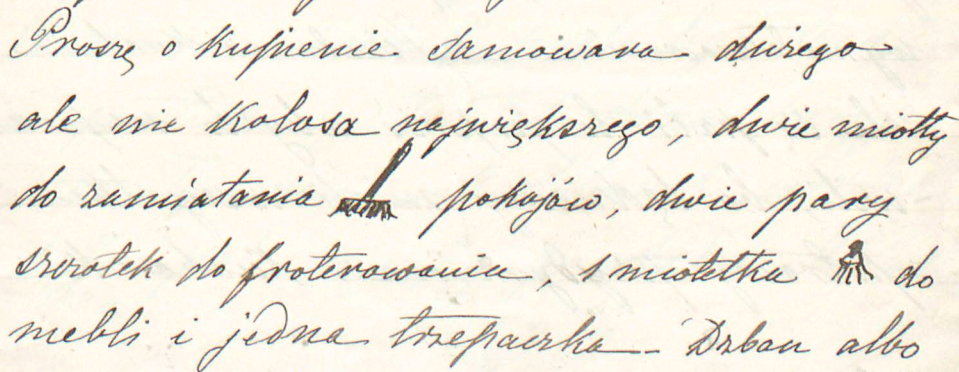 Proszę o kupienie samowara dużego
ale nie kolosa największego, dwie miotły
do zamiatania pokojów, dwie pary
szczotek do froterowania, 1 miotełka do
mebli i jedna trzepaczka – Dzban albo